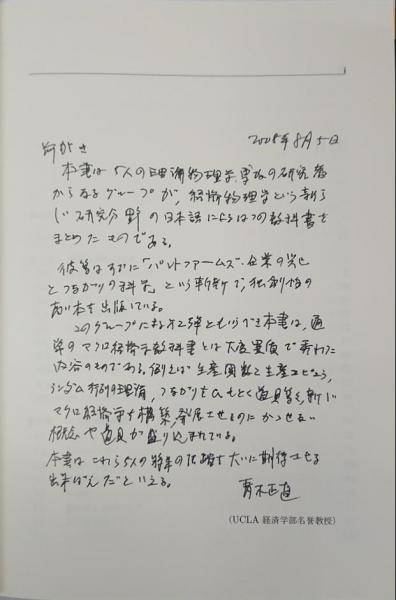 i
2008年8月5日
前がき
本書は5人の理論物理学専攻の研究者
からなるグループが，経済物理学という新ら
しい研究分野の日本語によるはつの教科書を
まとめたものである。
彼等はすでに「パレート・ファームズ-企業の興亡
とつながりの科学」という斬新で，独創性の
高い本を出版している。
このグループによる第2弾ともいうべき本書は，通
常のマクロ経済学教科書とは大層異質で
内容のものである。例えば生産関数と生産
ランダム行列理論，つながりをひもとく道具等を，新しい
マクロ経済学を構築，発展させるのにかかせない
概念や道具が盛り込まれている。
本書はこれら5人の将来の活躍を大いに期待させる
出来ばえだといえる。
青木正直
(UCLA 経済学部名誉教授)